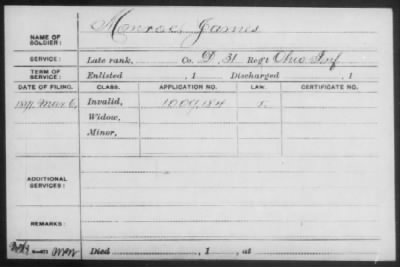 NAME OF SOLDIER: Monroe, James
SERVICE: Late rank, Co. D, 31 Reg't Ohio Inf
TERM OF SERVICE: Enlisted , 1 Discharged , 1
DATE OF FILING. CLASS. APPLICATION NO. LAW. CERTIFICATE NO.
1891, Mar 6, Invalid, 1009,184
Widow,
Minor,
ADDITIONAL SERVICES:
REMARKS:
Died , 1 , at